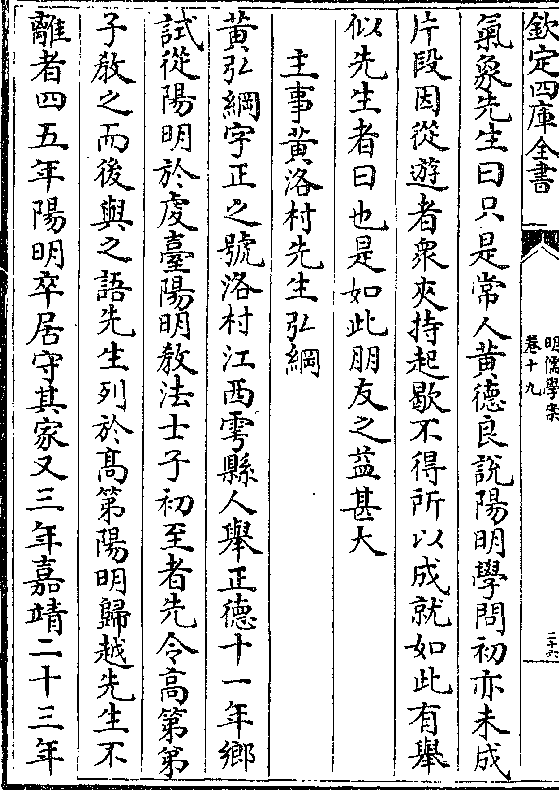 欽定四庫全書
明儒學案
卷十九
三十六
氣象先生曰只是常人黃德良說陽明學問初亦未成
片段因從遊者衆夾持起歇不得所以成就如此有舉
似先生者曰也是如此朋友之益甚大
主事黃洛村先生弘綱
黃弘綱字正之號洛村江西雩縣人舉正德十一年鄉
試從陽明於虔臺陽明教法士子初至者先令高第第
子教之而後與之語先生列於高第陽明歸越先生不
離者四五年陽明卒居守其家又三年嘉靖二十三年